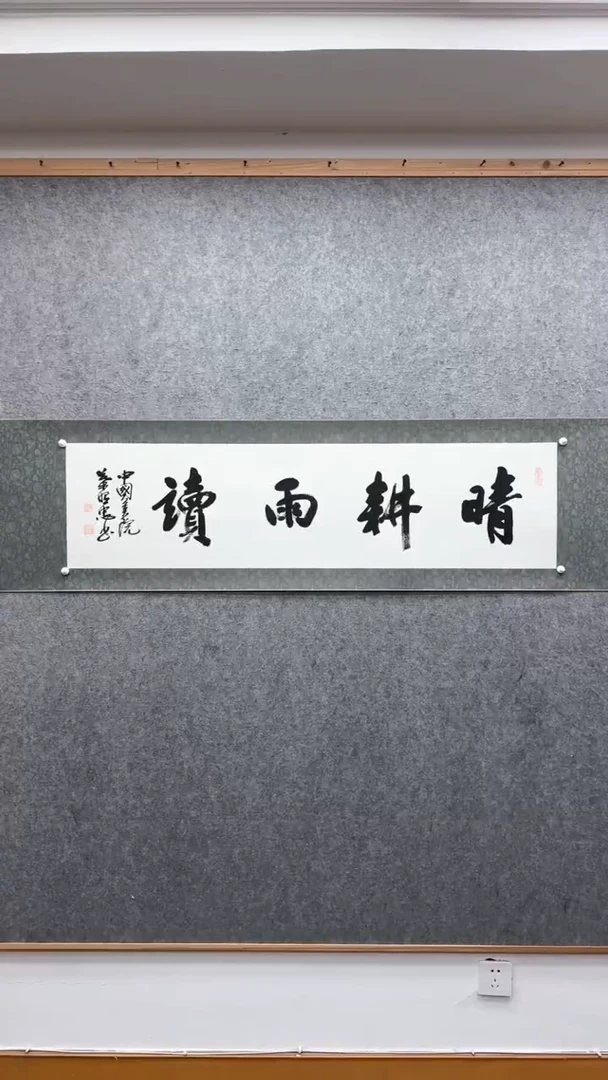 晴耕雨讀
中國書院